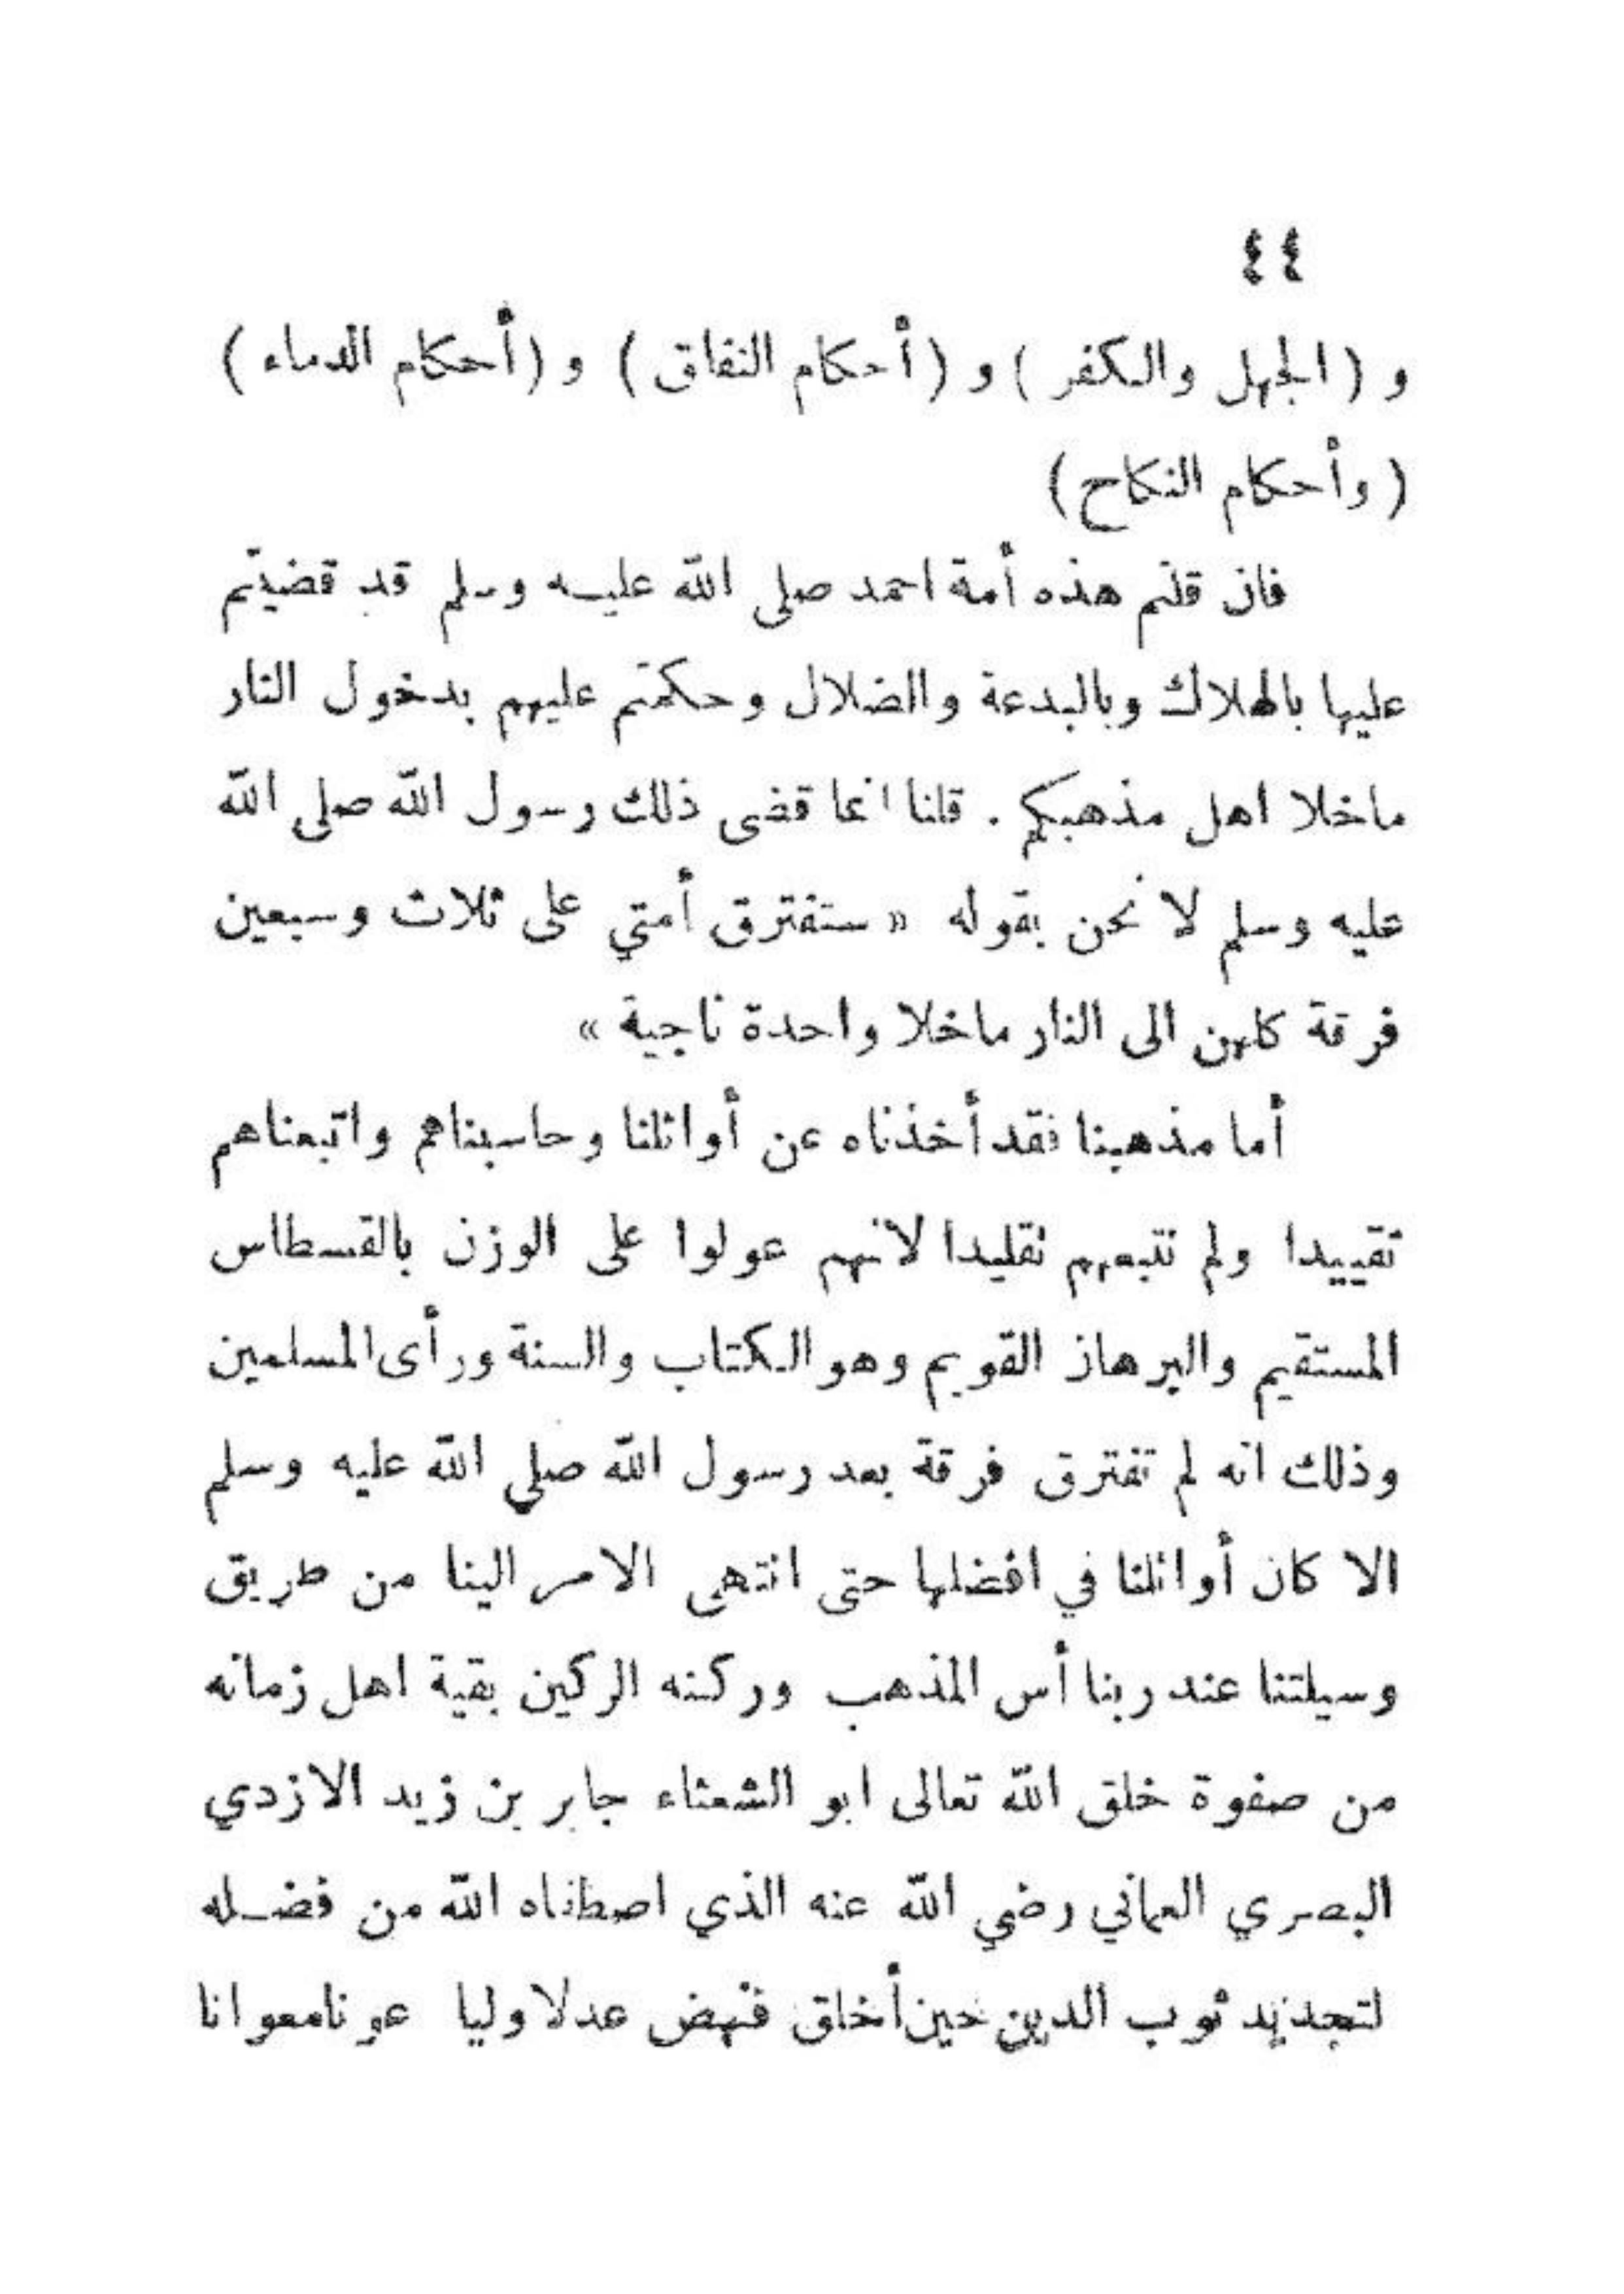 ٤٤
و (الجهل والكفر) و (أحكام النفاق) و (أحكام الدماء)
(وأحكام النكاح)
فان قلتم هذه أمة احمد صلى الله عليه وسلم قد قضيتم
عليها بالهلاك وبالبدعة والضلال وحكمتم عليهم بدخول النار
ماخلا اهل مذهبكم . قلنا انما قضى ذلك رسول الله صلى الله
عليه وسلم لا نحن بقوله « ستفترق أمتي على ثلاث وسبعين
فرقة كلهن الى النار ماخلا واحدة ناجية »
أما مذهبنا فقد أخذناه عن أوائلنا وحاسبناهم واتبعناهم
تقييدا ولم نتبعهم تقليدا لانهم عولوا على الوزن بالقسطاس
المستقيم والبرهان القويم وهو الكتاب والسنة ورأى المسلمين
وذلك انه لم تفترق فرقة بعد رسول الله صلي الله عليه وسلم
الا كان أوائلنا في افضلها حتى انتهى الامر الينا من طريق
وسيلتنا عند ربنا أس المذهب وركنه الركين بقية اهل زمانه
من صفوة خلق الله تعالى ابو الشعثاء جابر بن زيد الازدي
البصري العماني رضي الله عنه الذي اصطفاه الله من فضله
لتجديد ثوب الدين حين أخلق فنهض عدلا وليا عونا معوانا